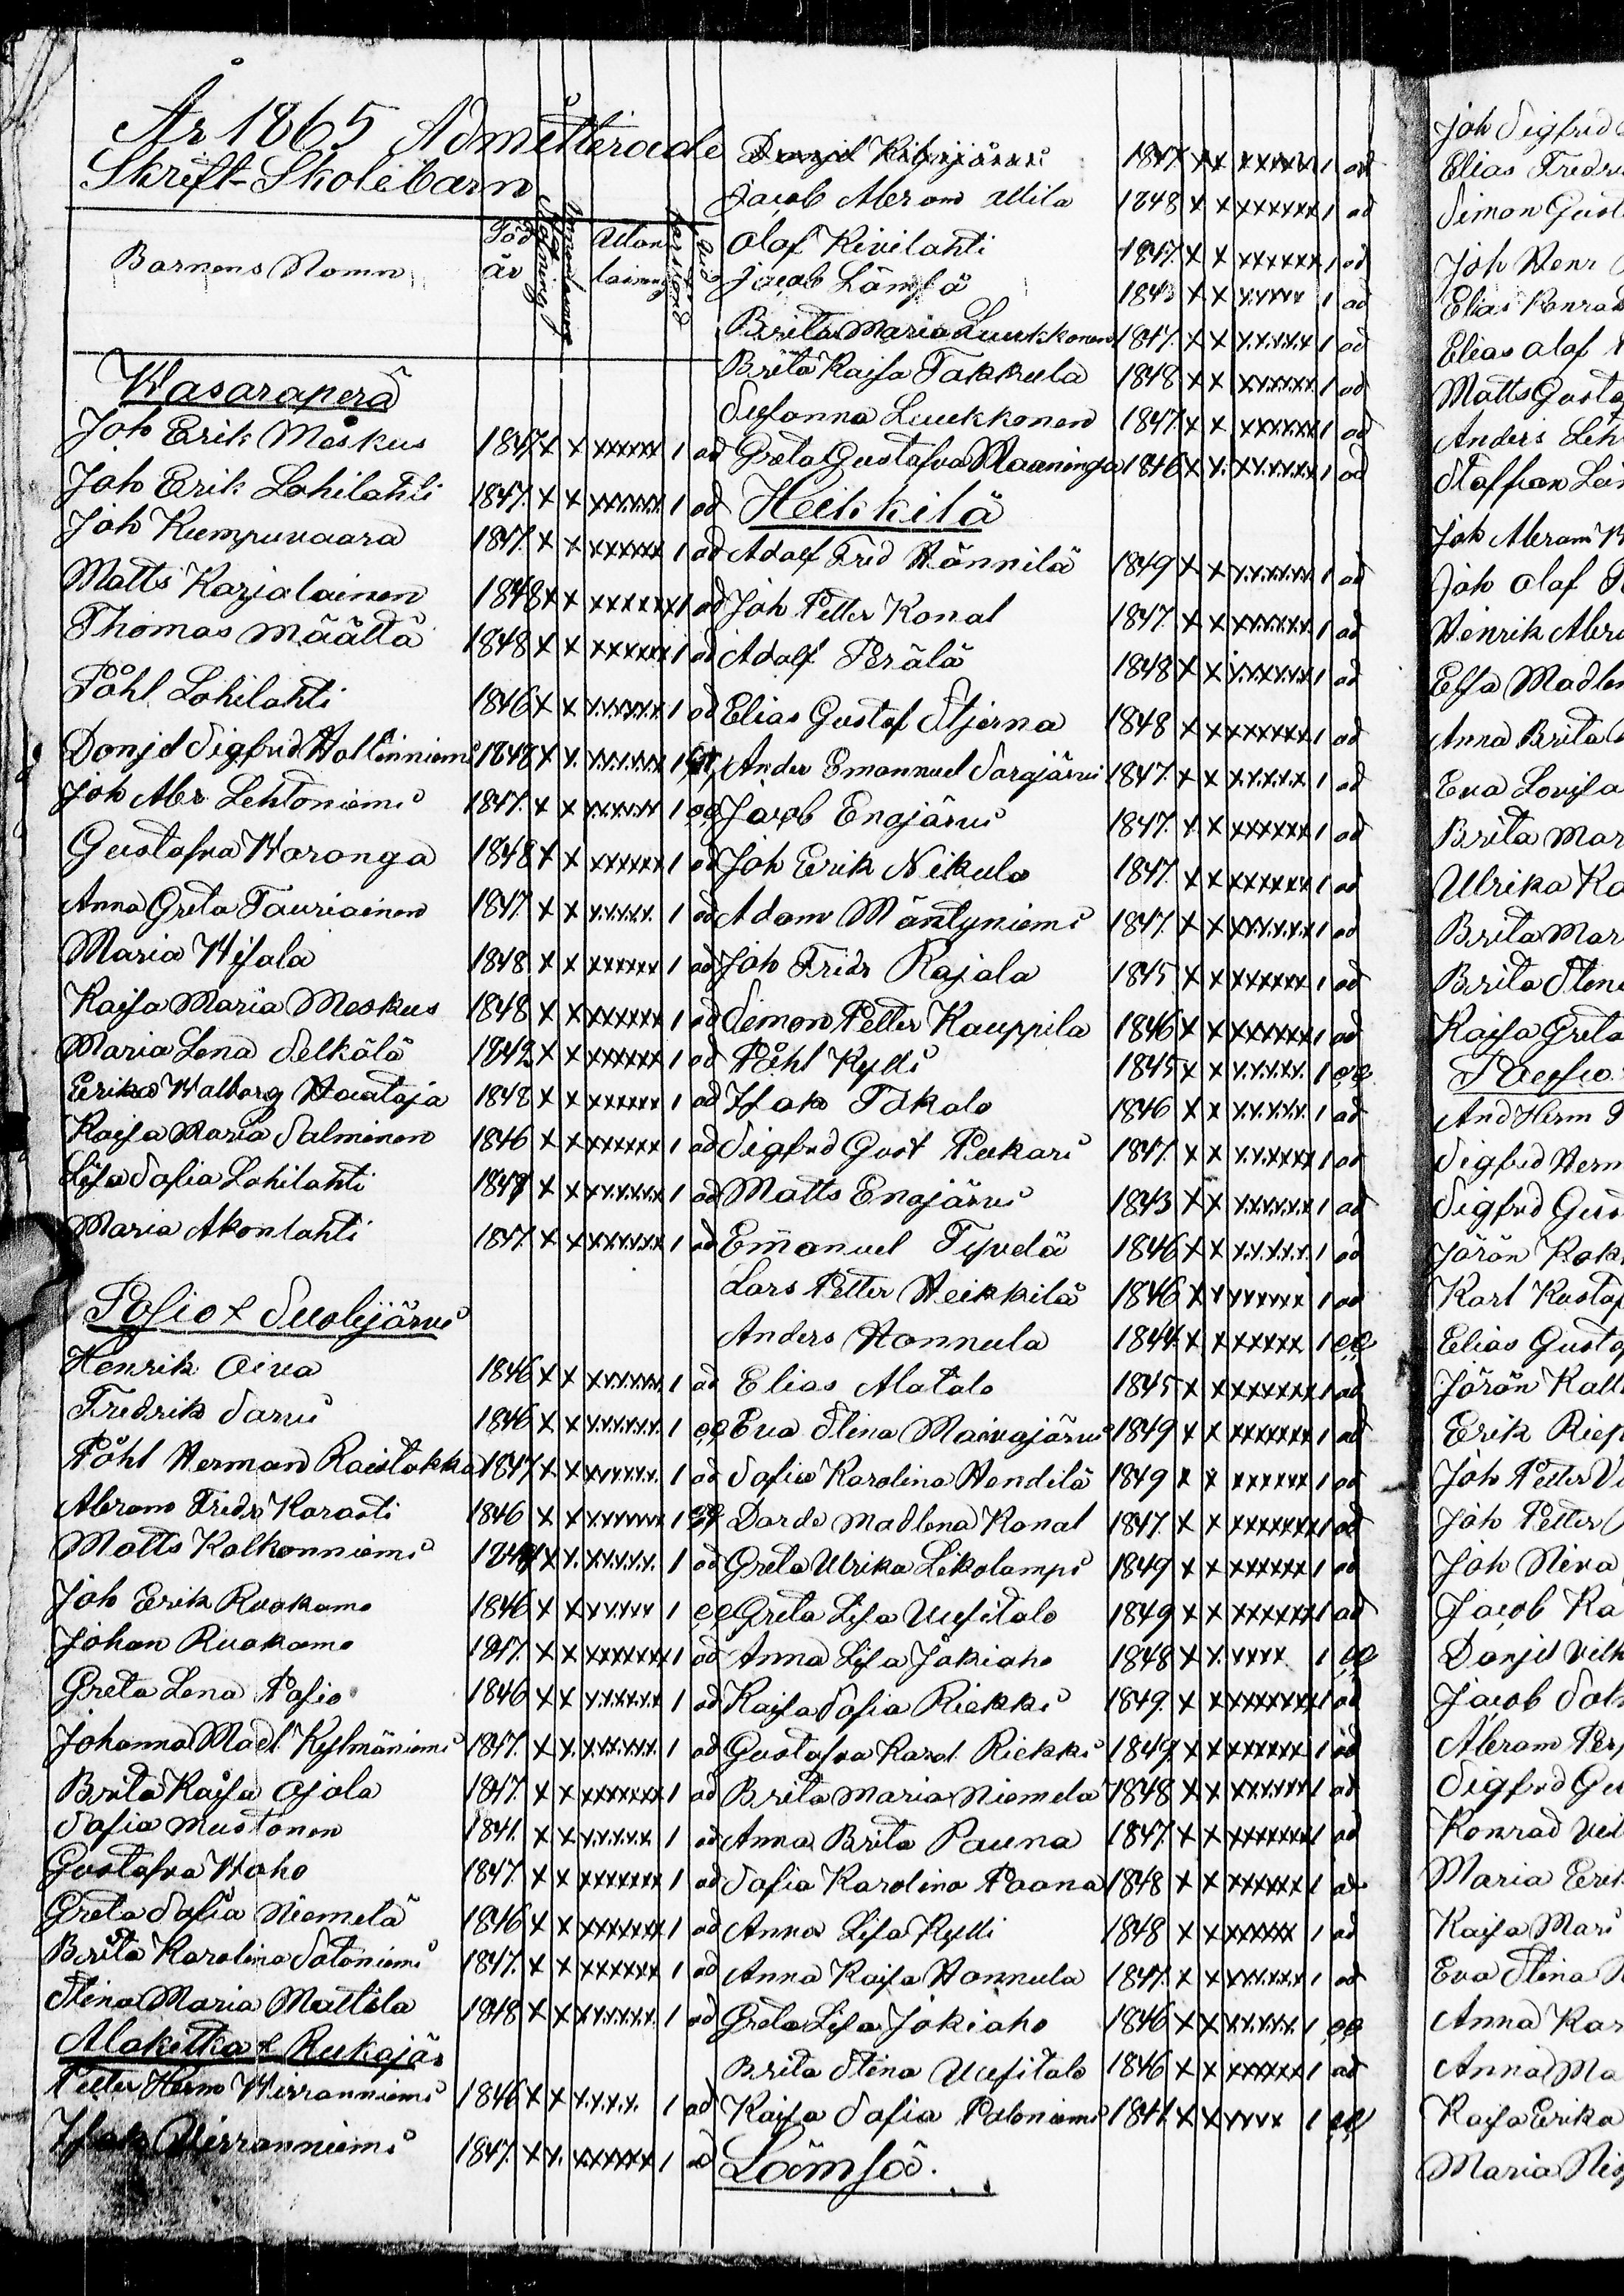 År 1865 Admitterade
Skrift-Skolebarn
Barnens Namn Föd år Utan läsning
Wasaraperä
Joh Erik Meskus 1847 x x xxxxxx 1 ad
Joh Erik Lohilahti 1847. x x xxxxxx 1 ad
Joh Kumpuvaara 1847. x x xxxxxx 1 ad
Matts Karjalainen 1848 x x xxxxxx 1 ad
Thomas Määttä 1848 x x xxxxxx 1 ad
Påhl Lohilahti 1846 x x xxxxxx 1 ad
Danjel Sigfrid Hallinniemi 1848 x x xxxxxx 1
Joh Abr Lehtoniemi 1847. x x xxxxxx 1
Gustafva Waranga 1848 x x xxxxxx 1 ad
Anna Greta Tauriainen 1847. x x xxxxx 1 ad
Maria Wisala 1848 x x xxxxxx 1 ad
Kaisa Maria Meskus 1848 x x xxxxxx 1 ad
Maria Lena Selkälä 1842 x x xxxxxx 1 ad
Erika Walborg Hautaja 1848 x x xxxxxx 1 ad
Kaisa Maria Salminen 1846 x x xxxxxx 1 ad
Lisa Sofia Lohilahti 1847 x x xxxxxx 1 ad
Maria Akonlahti 1847. x x xxxxxx 1 ad
Posio & Suolijärvi
Henrik Oiva 1846 x x xxxxxx 1 ad
Fredrik Sarvi 1846 x x xxxxxx 1
Påhl Herman Raistakka 1847 x x xxxxxx 1 ad
Abram Fredr Karasti 1846 x x xxxxxx 1
Matts Kalkonniemi x x xxxxxx 1 ad
Joh Erik Ruokamo 1846 x x xxxxx 1
Johan Ruokamo 1847. x x xxxxxxx 1 ad
Greta Lena Posio 1846 x x xxxxxx 1 ad
Johanna Madl Kylmäniemi 1847. x x xxxxxx 1 ad
Brita Kaisa Ojala 1847. x x xxxxxxx 1 ad
Sofia Mustonen 1841. x x xxxxx 1 ad
Gustafva Waho 1847. x x xxxxxxx 1 ad
Greta Sofia Niemelä 1846 x x xxxxxxx 1 ad
Brita Karolina Satoniemi 1847. x x xxxxxx 1 ad
Stina Maria Mattila 1848 x x xxxxxx 1 ad
Alakitka & Rukajär
Petter Herm Wirranniemi 1846 x x xxxxx 1 ad
Isak Virranniemi 1847. x x xxxxxx 1 ad
Danjel Kitkajärvi 1847 x x xxxxxx 1 ad
Jacob Abram Uttila 1848 x x xxxxxx 1 ad
Olof Kivilahti 1847. x x xxxxxx 1 ad
Jacob Lämsä x x xxxxx 1 ad
Brita Maria Luukkonen 1847. x x xxxxxx 1 ad
Brita Kaisa Takkula 1848 x x xxxxxx 1 ad
Susanna Luukkonen 1847. x x xxxxxx 1 ad
Greta Gustafva Maaninga 1846 x x xxxxxx 1 ad
Heikkilä
Adolf Frid Hännilä 1849 x x xxxxxx 1 ad
Joh Petter Konal 1847. x x xxxxxx 1 ad
Adolf Perälä 1848 x x xxxxxx 1 ad
Elias Gustaf Stjerna 1848 x x xxxxxxx 1 ad
Ander Emanuel Sarjärvi 1847. x x xxxxx 1 ad
Jacob Enojärvi 1847. x x xxxxxx 1 ad
Joh Erik Nikula 1847. x x xxxxxx 1 ad
Adam Mäntyniemi 1847. x x xxxxxx 1 ad
Joh Fridr Rajala 1845 x x xxxxxx 1 ad
Simon Petter Kauppila 1846 x x xxxxxx 1 ad
Påhl Kylli 1845 x x xxxxx 1
Isak Takalo 1846 x x xxxxxx 1 ad
Sigfrid Gust Pekari 1847. x x xxxxxx 1 ad
Matts Enojärvi 1843 x x xxxxxx 1 ad
Emanuel Tyvelä 1846 x x xxxxx 1 ad
Lars Petter Heikkilä 1846 x x xxxxxx 1 ad
Anders Hannula 1844. x x xxxxxx 1
Elias Alatalo 1845 x x xxxxxxx 1 ad
Eva Stina Maivajärvi 1849 x x xxxxxxx 1 ad
Sofia Karolina Hendilä 1849 x x xxxxxx 1 ad
Darde Madlena Konal 1847. x x xxxxxxx 1 ad
Greta Ulrika Likolampi 1849 x x xxxxxx 1 ad
Greta Lisa Uusitalo 1849 x x xxxxxx 1 ad
Anna Lisa Jokiaho 1848 x x xxxx 1
Kaisa Sofia Riekki 1849. x x xxxxxxx 1 ad
Gustafva Karol Riekki 1849 x x xxxxxxx 1 ad
Brita Maria Niemelä 1848 x x xxxxxx 1 ad
Anna Brita Pauna 1847. x x xxxxxxx 1 ad
Sofia Karolina Paana 1848 x x xxxxxx 1 ad
Anna Lisa Kylli 1848 x x xxxxxx 1 ad
Anna Kaisa Hannula 1847. x x xxxxxx 1 ad
Greta Lisa Jokiaho 1846 x x xxxxxx 1
Brita Stina Uusitalo 1846 x x xxxxxx 1 ad
Kaisa Sofia Paloniemi 1841. x x xxxx 1
Lämsä.
Joh Sigfrid
Elias Fredr
Simon Gust
Joh Henr
Elias Konrad
Elias Olof
Matts Gusta
Anders Leh
Staffan
Joh Abram
Joh Olof
Henrik Abra
Elsa Madlen
Anna Brita
Eva Lovisa
Brita Mar
Ulrika Ka
Brita Mar
Brita Stina
Kaisa Greta
And Herm
Sigfrid Herm
Sigfrid Gus
Jöran
Karl Kustaf
Elias Gusta
Jöran Kall
Erik
Joh Petter
Joh Petter
Joh Niva
Jacob Ka
Danjel Vilh
Jacob Sal
Abram Per
Sigfrid Gu
Konrad Vil
Maria Erik
Kaisa Mari
Eva Stina
Anna Kar
Anna Ma
Kaisa Erika
Maria